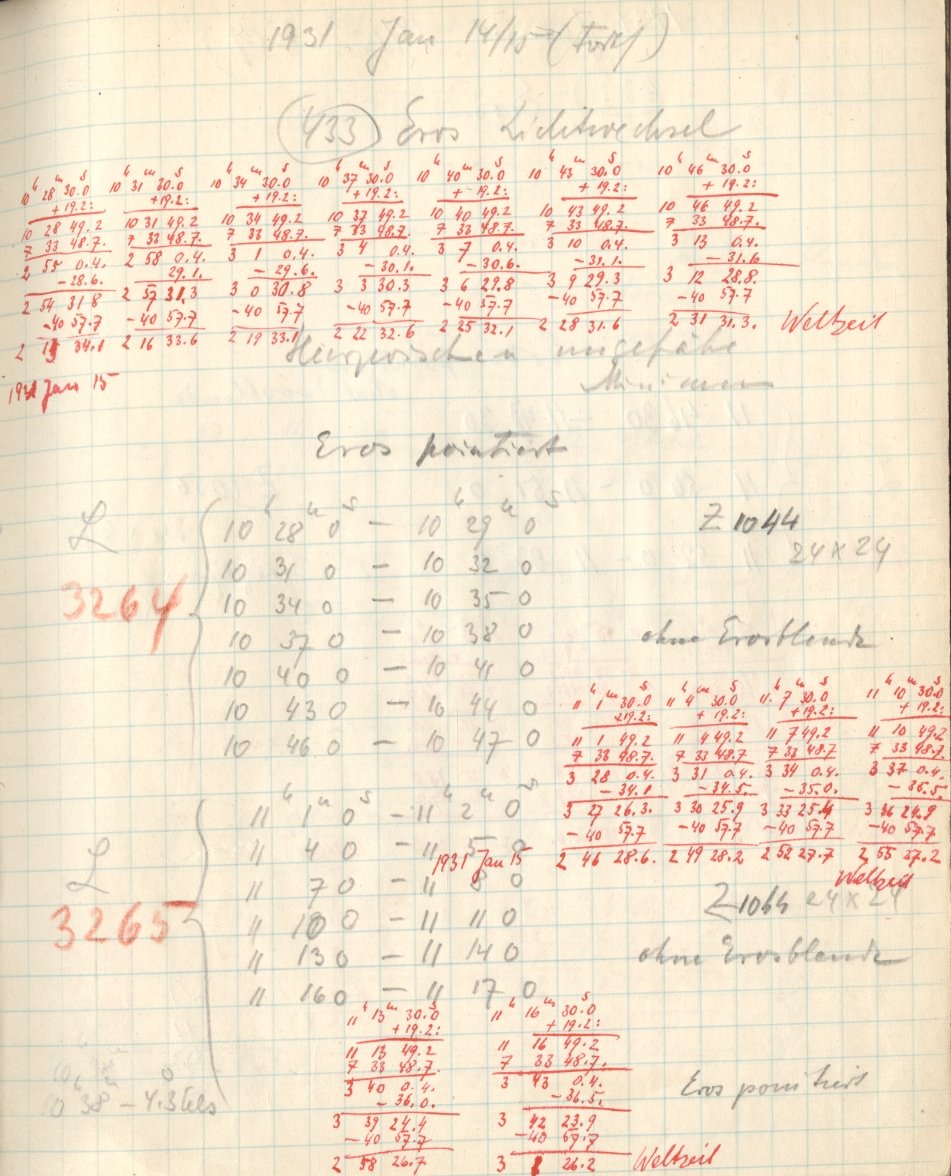 1931 Jan 14/15 (Forts)
433 Eros Lichtwechsel
h m s h m s h m s h m s h m s h m s h m s
10 28 30.0 10 31 30.0 10 34 30.0 10 37 30.0 10 40 30.0 10 43 30.0 10 46 30.0
+19.2: +19.2: +19.2: +19.2: +19.2: +19.2: +19.2:
10 28 49.2 10 31 49.2 10 34 49.2 10 37 49.2 10 40 49.2 10 43 49.2 10 46 49.2
7 33 48.7. 7 33 48.7. 7 33 48.7. 7 33 48.7. 7 33 48.7. 7 33 48.7. 7 33 48.7.
2 55 0.4. 2 58 0.4. 3 1 0.4. 3 4 0.4. 3 7 0.4. 3 10 0.4. 3 13 0.4.
-28.6. 29.1. -29.6. -30.1. -30.6. -31.1. -31.6
2 54 31 8 2 57 31,3 3 0 30.8 3 3 30.3 3 6 29.8 3 9 29.3 3 12 28.8.
-40 57.7 -40 57.7 -40 57.7 -40 57.7 -40 57.7 -40 57.7 -40 57.7
2 13 34.1 2 16 33.6 2 19 33.1 2 22 32.6 2 25 32.1 2 28 31.6 2 31 31.3. Weltzeit
ungefähr
1931 Jan 15 Minimum
Eros pointiert
h m s h m s
10 28 0 — 10 29 0 Z 1044
L 10 31 0 — 10 32 0 24 x 24
3264 10 34 0 — 10 35 0
10 37 0 — 10 38 0 ohne Erosblende
10 40 0 — 10 41 0
10 43 0 — 10 44 0
10 46 0 — 10 47 0
h m s h m s h m s h m s
11 1 30.0 11 4 30.0 11 7 30.0 11 10 30.0
+19.2: +19.2: +19.2: +19.2:
11 1 49.2 11 4 49.2 11 7 49.2 11 10 49.2
7 33 48.7. 7 33 48.7. 7 33 48.7 7 33 48.7.
3 28 0.4. 3 31 0.4. 3 34 0.4. 3 37 0.4.
-34.1 -34.5. -35.0. -35.5.
3 27 26.3. 3 30 25.9 3 33 25.4 3 36 24.9
-40 57.7 -40 57.7 -40 57.7 -40 57.7
1931 Jan 15 2 46 28.6. 2 49 28.2 2 52 27.7 2 55 27.2
Weltzeit
h m s h m s
11 1 0 — 11 2 0
11 4 0 — 11 5 0
L 11 7 0 — 11 8 0
3265 11 10 0 — 11 11 0 Z 1044 24 x 24
11 13 0 — 11 14 0 ohne Erosblende
11 16 0 — 11 17 0
h m s h m s
11 13 30.0 11 16 30.0
+19.2: +19.2:
11 13 49.2 11 16 49.2
7 33 48.7. 7 33 48.7.
3 40 0.4. 3 43 0.4.
-36.0. -36.5.
3 39 24.4 3 42 23.9
-40 57.7 -40 57.7
2 58 26.7 3 1 26.2 Weltzeit
Eros pointiert
10 38 —